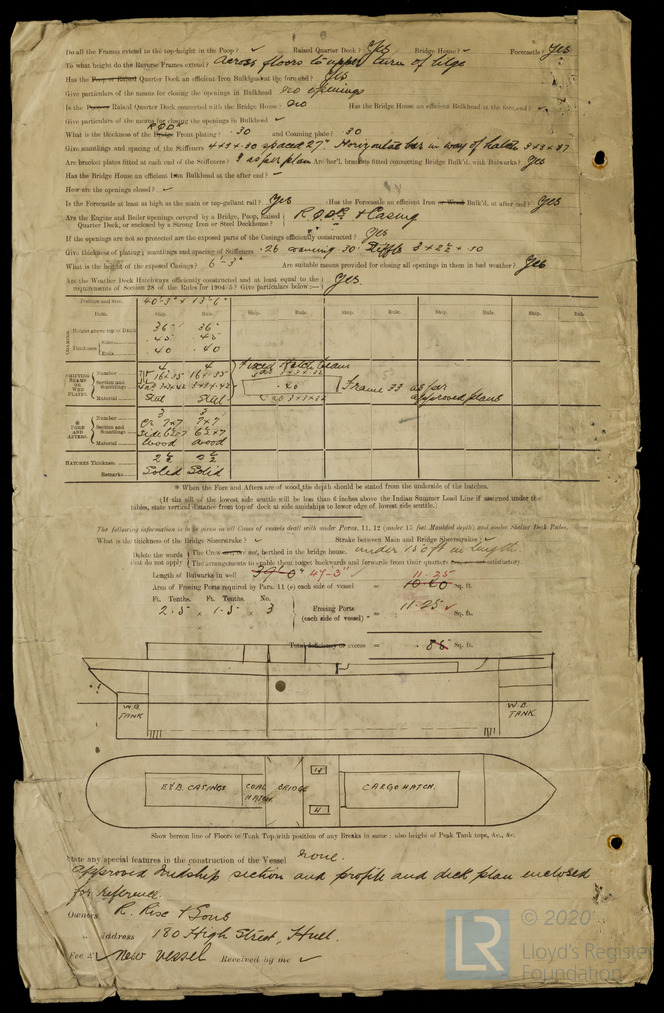 Do all the Frames extend to the top height in the Poop? ✓ Raised Quarter Deck? Yes Bridge House? ✓ Forecastle? Yes
To what height do the Reverse Frames extend? Across floors to upper turn of bilge
Has the Poop or Raised Quarter Deck an efficient Iron Bulkhead at the fore end? Yes
Give particulars of the means for closing the openings in Bulkhead no openings
Is the Poop or Raised Quarter Deck connected with the Bridge House? no Has the Bridge House an efficient Bulkhead at the fore end? ✓
Give particulars of the means for closing the openings in Bulkhead ✓
What is the thickness of the Bridge Front plating? .30 and Coaming plate? .30
Give scantlings and spacing of the Stiffeners 4×3×.30 spaced 27" Horizontal bar in way of hatch 3×3×.37
Are bracket plates fitted at each end of the Stiffeners? as per plan Are hor'l. brackets fitted connecting Bridge Bulk'd. with Bulwarks? Yes
Has the Bridge House an efficient Iron Bulkhead at the after end? ✓
How are the openings closed? ✓
Is the Forecastle at least as high as the main or top-gallant rail? Yes Has the Forecastle an efficient Iron or Wood Bulk'd. at after end? Yes
Are the Engine and Boiler openings covered by a Bridge, Poop, Raised Quarter Deck, or enclosed by a Strong Iron or Steel Deckhouse? R.Q.Dk + Casing
If the openings are not so protected are the exposed parts of the Casings efficiently constructed? Yes
Give thickness of plating; scantlings and spacing of Stiffeners .26 coaming .30 Stiff's 3×2½×.30
What is the height of the exposed Casings? 6'-3" Are suitable means provided for closing all openings in them in bad weather? Yes
Are the Weather Deck Hatchways efficiently constructed and at least equal to the requirements of Section 28 of the Rules for 1904/5? Give particulars below:— Yes.
Position and Size. 40'-3" × 13'-6"
Item. Ship. Rule. Ship. Rule. Ship. Rule. Ship. Rule. Ship. Rule.
COAMING Height above top of Deck 36" 36"
Thickness Sides .45 .45
Ends .40 .40
SHIFTING BEAMS OR WEB PLATES. Number 4 4 Fixed Hatch beam
Section and Scantlings .40 Frame 33 as per
Material Steel Steel approved plans
* FORE AND AFTERS. Number 3 3
Section and Scantlings 7×7 7×7
Material Wood Wood
HATCHES Thickness 2½ 2½
Remarks Solid Solid
* When the Fore and Afters are of wood, the depth should be stated from the underside of the hatches.
(If the sill of the lowest side scuttle will be less than 6 inches above the Indian Summer Load Line if assigned under the
tables, state vertical distance from top of deck at side amidships to lower edge of lowest side scuttle.)
The following information is to be given in all Cases of vessels dealt with under Paras. 11, 12 (under 15 feet Moulded depth) and under Shelter Deck Rules.
What is the thickness of the Bridge Sheerstrake? ✓ Strake between Main and Bridge Sheerstrake? ✓
Delete the words that do not apply The Crew are, are not, berthed in the bridge house. under 150 ft in length
The arrangements to enable them to get backwards and forwards from their quarters are, are not satisfactory.
Length of Bulwarks in well 39'-0" 47'-3" ✓
11.25
Area of Freeing Ports required by Para. 11 (e) each side of vessel = 10.40 Sq. ft.
Ft. Tenths. Ft. Tenths. No.
2.5 × 1.5 × 3 Freeing Ports (each side of vessel) = 11.25 ✓ Sq. ft.
× ×
Total deficiency or excess = .85 Sq. ft.
W.B. TANK
W.B. TANK.
E & B. CASINGS COAL HATCH BRIDGE H H CARGO HATCH.
Show hereon line of Floors or Tank Top with position of any Breaks in same; also height of Peak Tank tops, &c., &c.
State any special features in the construction of the Vessel none.
Approved midship section and profile and deck plan enclosed
for reference.
Owners R. Rix & Sons
" Address 180 High Street, Hull.
Fee £ new vessel Received by me ✓
LR © 2020
Lloyd's Register
Foundation